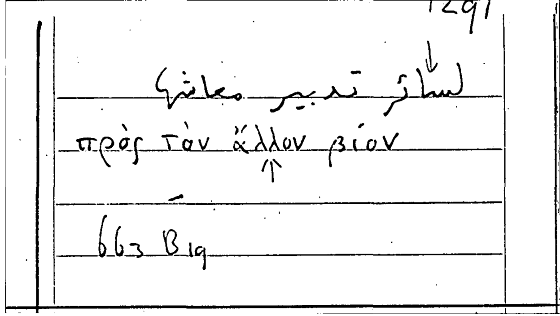 لسائر تدبير معاشها
πρὸς τὸν ἄλλον βίον
663 B 19